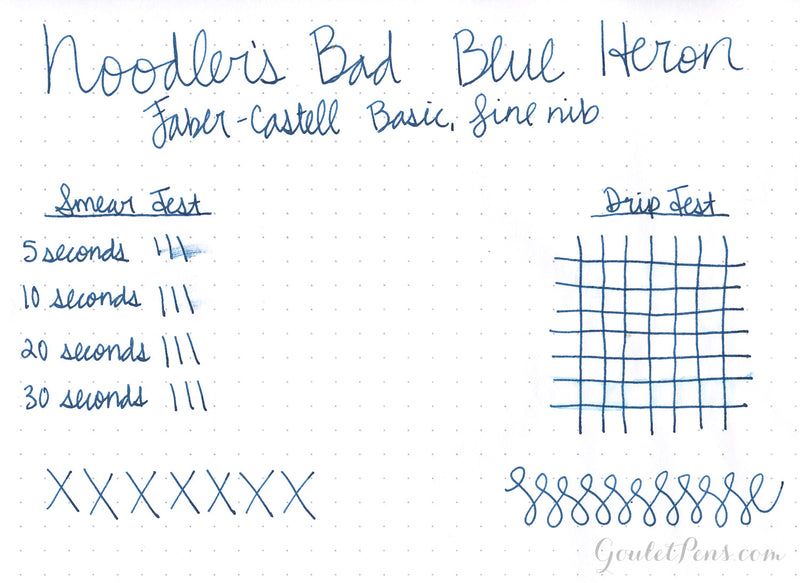 Noodler's Bad Blue Heron
Faber-Castell Basic, fine nib
Smear Test
5 seconds
10 seconds
20 seconds
30 seconds
Drip Test
X X X X X X X
GouletPens.com